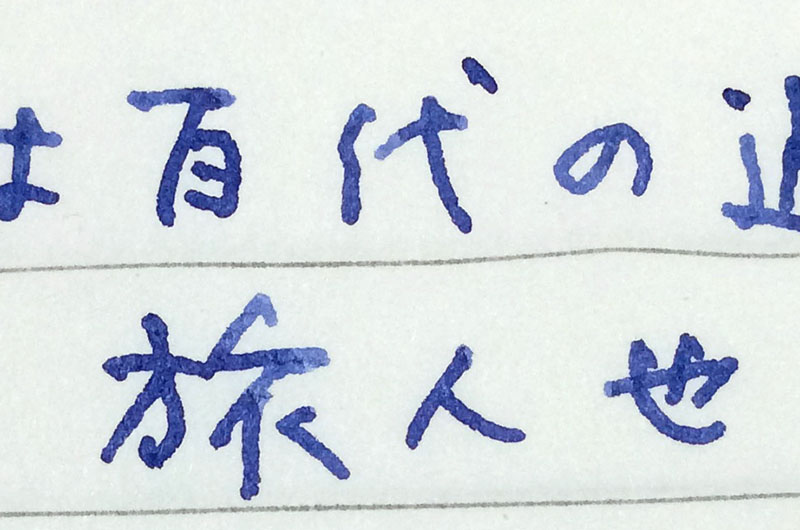 は百代の過
旅人也